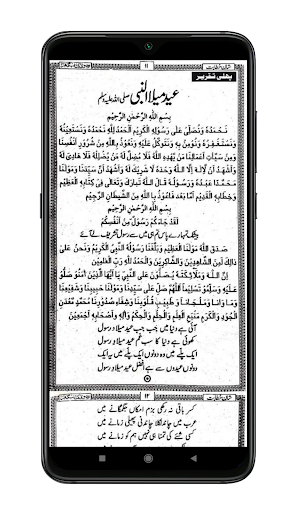 ۱۱
پہلی تقریر
عید میلاد النبی صلی اللہ علیہ وسلم
بِسْمِ اللّٰهِ الرَّحْمٰنِ الرَّحِيْمِ
نَحْمَدُهٗ وَنُصَلِّيْ عَلٰى رَسُوْلِهِ الْكَرِيْمِ اَلْحَمْدُ لِلّٰهِ نَحْمَدُهٗ وَنَسْتَعِيْنُهٗ
وَنَسْتَغْفِرُهٗ وَنُؤْمِنُ بِهٖ وَنَتَوَكَّلُ عَلَيْهِ وَنَعُوْذُ بِاللّٰهِ مِنْ شُرُوْرِ اَنْفُسِنَا
وَمِنْ سَيِّاٰتِ اَعْمَالِنَا مَنْ يَّهْدِهِ اللّٰهُ فَلَا مُضِلَّ لَهٗ وَمَنْ يُّضْلِلْهُ فَلَا هَادِيَ لَهٗ
وَاَشْهَدُ اَنْ لَّا اِلٰهَ اِلَّا اللّٰهُ وَحْدَهٗ لَا شَرِيْكَ لَهٗ وَاَشْهَدُ اَنَّ سَيِّدَنَا وَمَوْلَانَا
مُحَمَّدًا عَبْدُهٗ وَرَسُوْلُهٗ قَالَ اللّٰهُ تَبَارَكَ وَتَعَالٰى فِيْ كِتَابِهِ الْعَظِيْمِ
وَخِطَابِهِ الْقَدِيْمِ اَمَّا بَعْدُ فَاَعُوْذُ بِاللّٰهِ مِنَ الشَّيْطٰنِ الرَّجِيْمِ
بِسْمِ اللّٰهِ الرَّحْمٰنِ الرَّحِيْمِ
لَقَدْ جَآءَكُمْ رَسُوْلٌ مِّنْ اَنْفُسِكُمْ
بیشک تمہارے پاس تم ہی میں سے رسول تشریف لے آئے
صَدَقَ اللّٰهُ مَوْلٰنَا الْعَظِيْمُ وَبَلَّغَنَا رَسُوْلُهُ النَّبِيُّ الْكَرِيْمُ وَنَحْنُ عَلٰى
ذٰلِكَ لَمِنَ الشَّاهِدِيْنَ وَالشَّاكِرِيْنَ وَالْحَمْدُ لِلّٰهِ رَبِّ الْعٰلَمِيْنَ
اِنَّ اللّٰهَ وَمَلٰٓئِكَتَهٗ يُصَلُّوْنَ عَلَى النَّبِيِّ يٰٓاَيُّهَا الَّذِيْنَ اٰمَنُوْا صَلُّوْا
عَلَيْهِ وَسَلِّمُوْا تَسْلِيْمًا اَللّٰهُمَّ صَلِّ عَلٰى سَيِّدِنَا وَمَوْلَانَا وَحَبِيْبِنَا وَشَفِيْعِنَا
وَطَبِيْبِ قُلُوْبِنَا وَشِفَاءِ صُدُوْرِنَا مُحَمَّدٍ مَّعْدِنِ
الْجُوْدِ وَالْكَرَمِ مَنْبَعِ الْعِلْمِ وَالْحِلْمِ وَالْحِكَمِ وَاٰلِهٖ وَاَصْحَابِهٖ اَجْمَعِيْنَ
آئی ہے دنیا میں جب جب عید میلاد رسول
کھوئی ہے دنیا کا سب غم عید میلاد رسول
ایک پلے میں ہے وہ دونوں ایک میں یہ ایک
دونوں عیدوں سے ہے افضل عید میلاد رسول
۱۲
کسر باقی نہ رکھی بزم امکاں جگمگانے میں
عرب میں چاند نکلا چاندنی پھیلی زمانے میں
کسی شئے کی تمنا ہی نہیں ہم کو زمانے میں